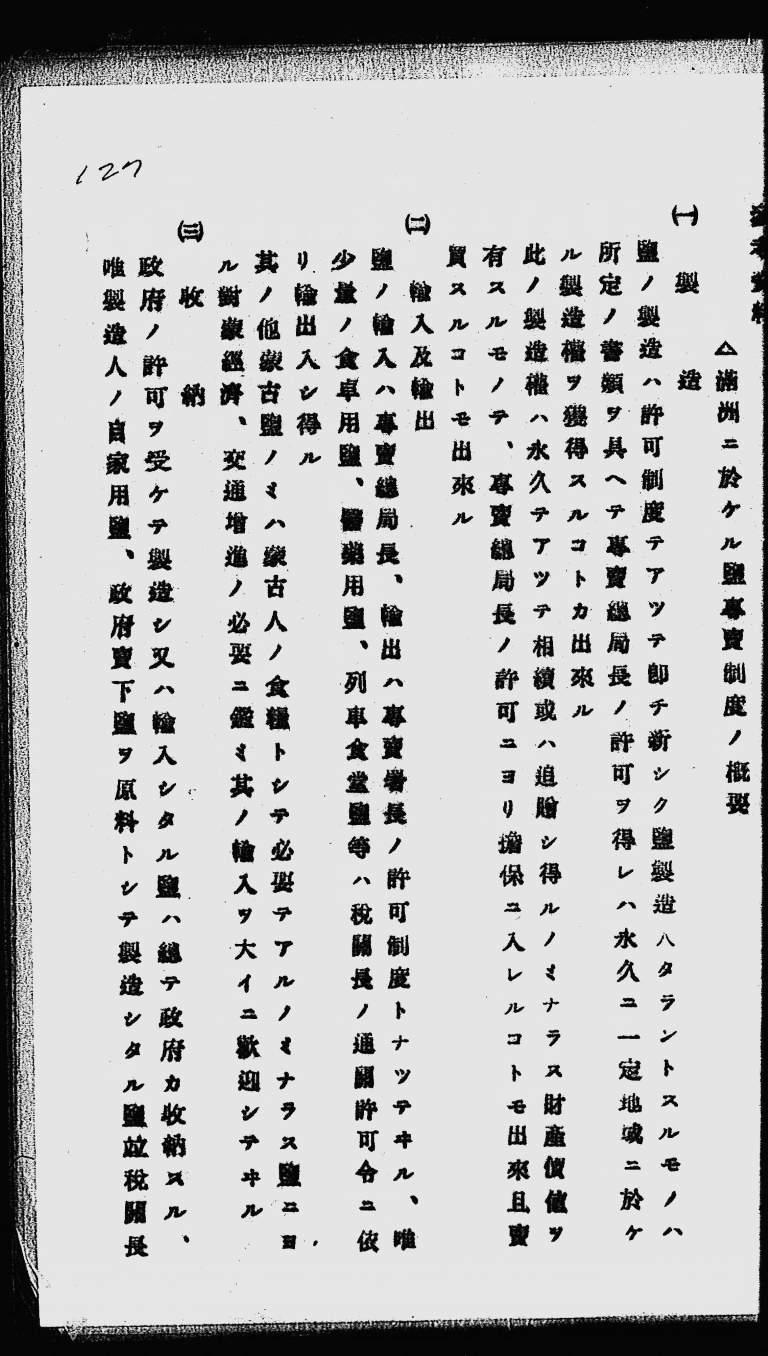 参考資料
△滿洲ニ於ケル鹽專賣制度ノ概要
㈠ 製造
鹽ノ製造ハ許可制度テアツテ卽チ新シク鹽製造人タラントスルモノハ
所定ノ書類ヲ具ヘテ專賣總局長ノ許可ヲ得レハ永久ニ一定地域ニ於ケ
ル製造權ヲ獲得スルコトカ出來ル
此ノ製造權ハ永久テアツテ相續或ハ追贈シ得ルノミナラス財產價値ヲ
有スルモノテ、專賣總局長ノ許可ニヨリ擔保ニ入レルコトモ出來且賣
買スルコトモ出來ル
㈡ 輸入及輸出
鹽ノ輸入ハ專賣總局長、輸出ハ專賣署長ノ許可制度トナツテヰル、唯
少量ノ食卓用鹽、醫藥用鹽、列車食堂鹽等ハ稅關長ノ通關許可令ニ依
リ輸出入シ得ル
其ノ他蒙古鹽ノミハ蒙古人ノ食糧トシテ必要テアルノミナラス鹽ニヨ
ル對蒙經濟、交通增進ノ必要ニ鑑ミ其ノ輸入ヲ大イニ歡迎シテヰル
㈢ 收納
政府ノ許可ヲ受ケテ製造シ又ハ輸入シタル鹽ハ總テ政府カ收納スル、
唯製造人ノ自家用鹽、政府賣下鹽ヲ原料トシテ製造シタル鹽竝稅關長
127